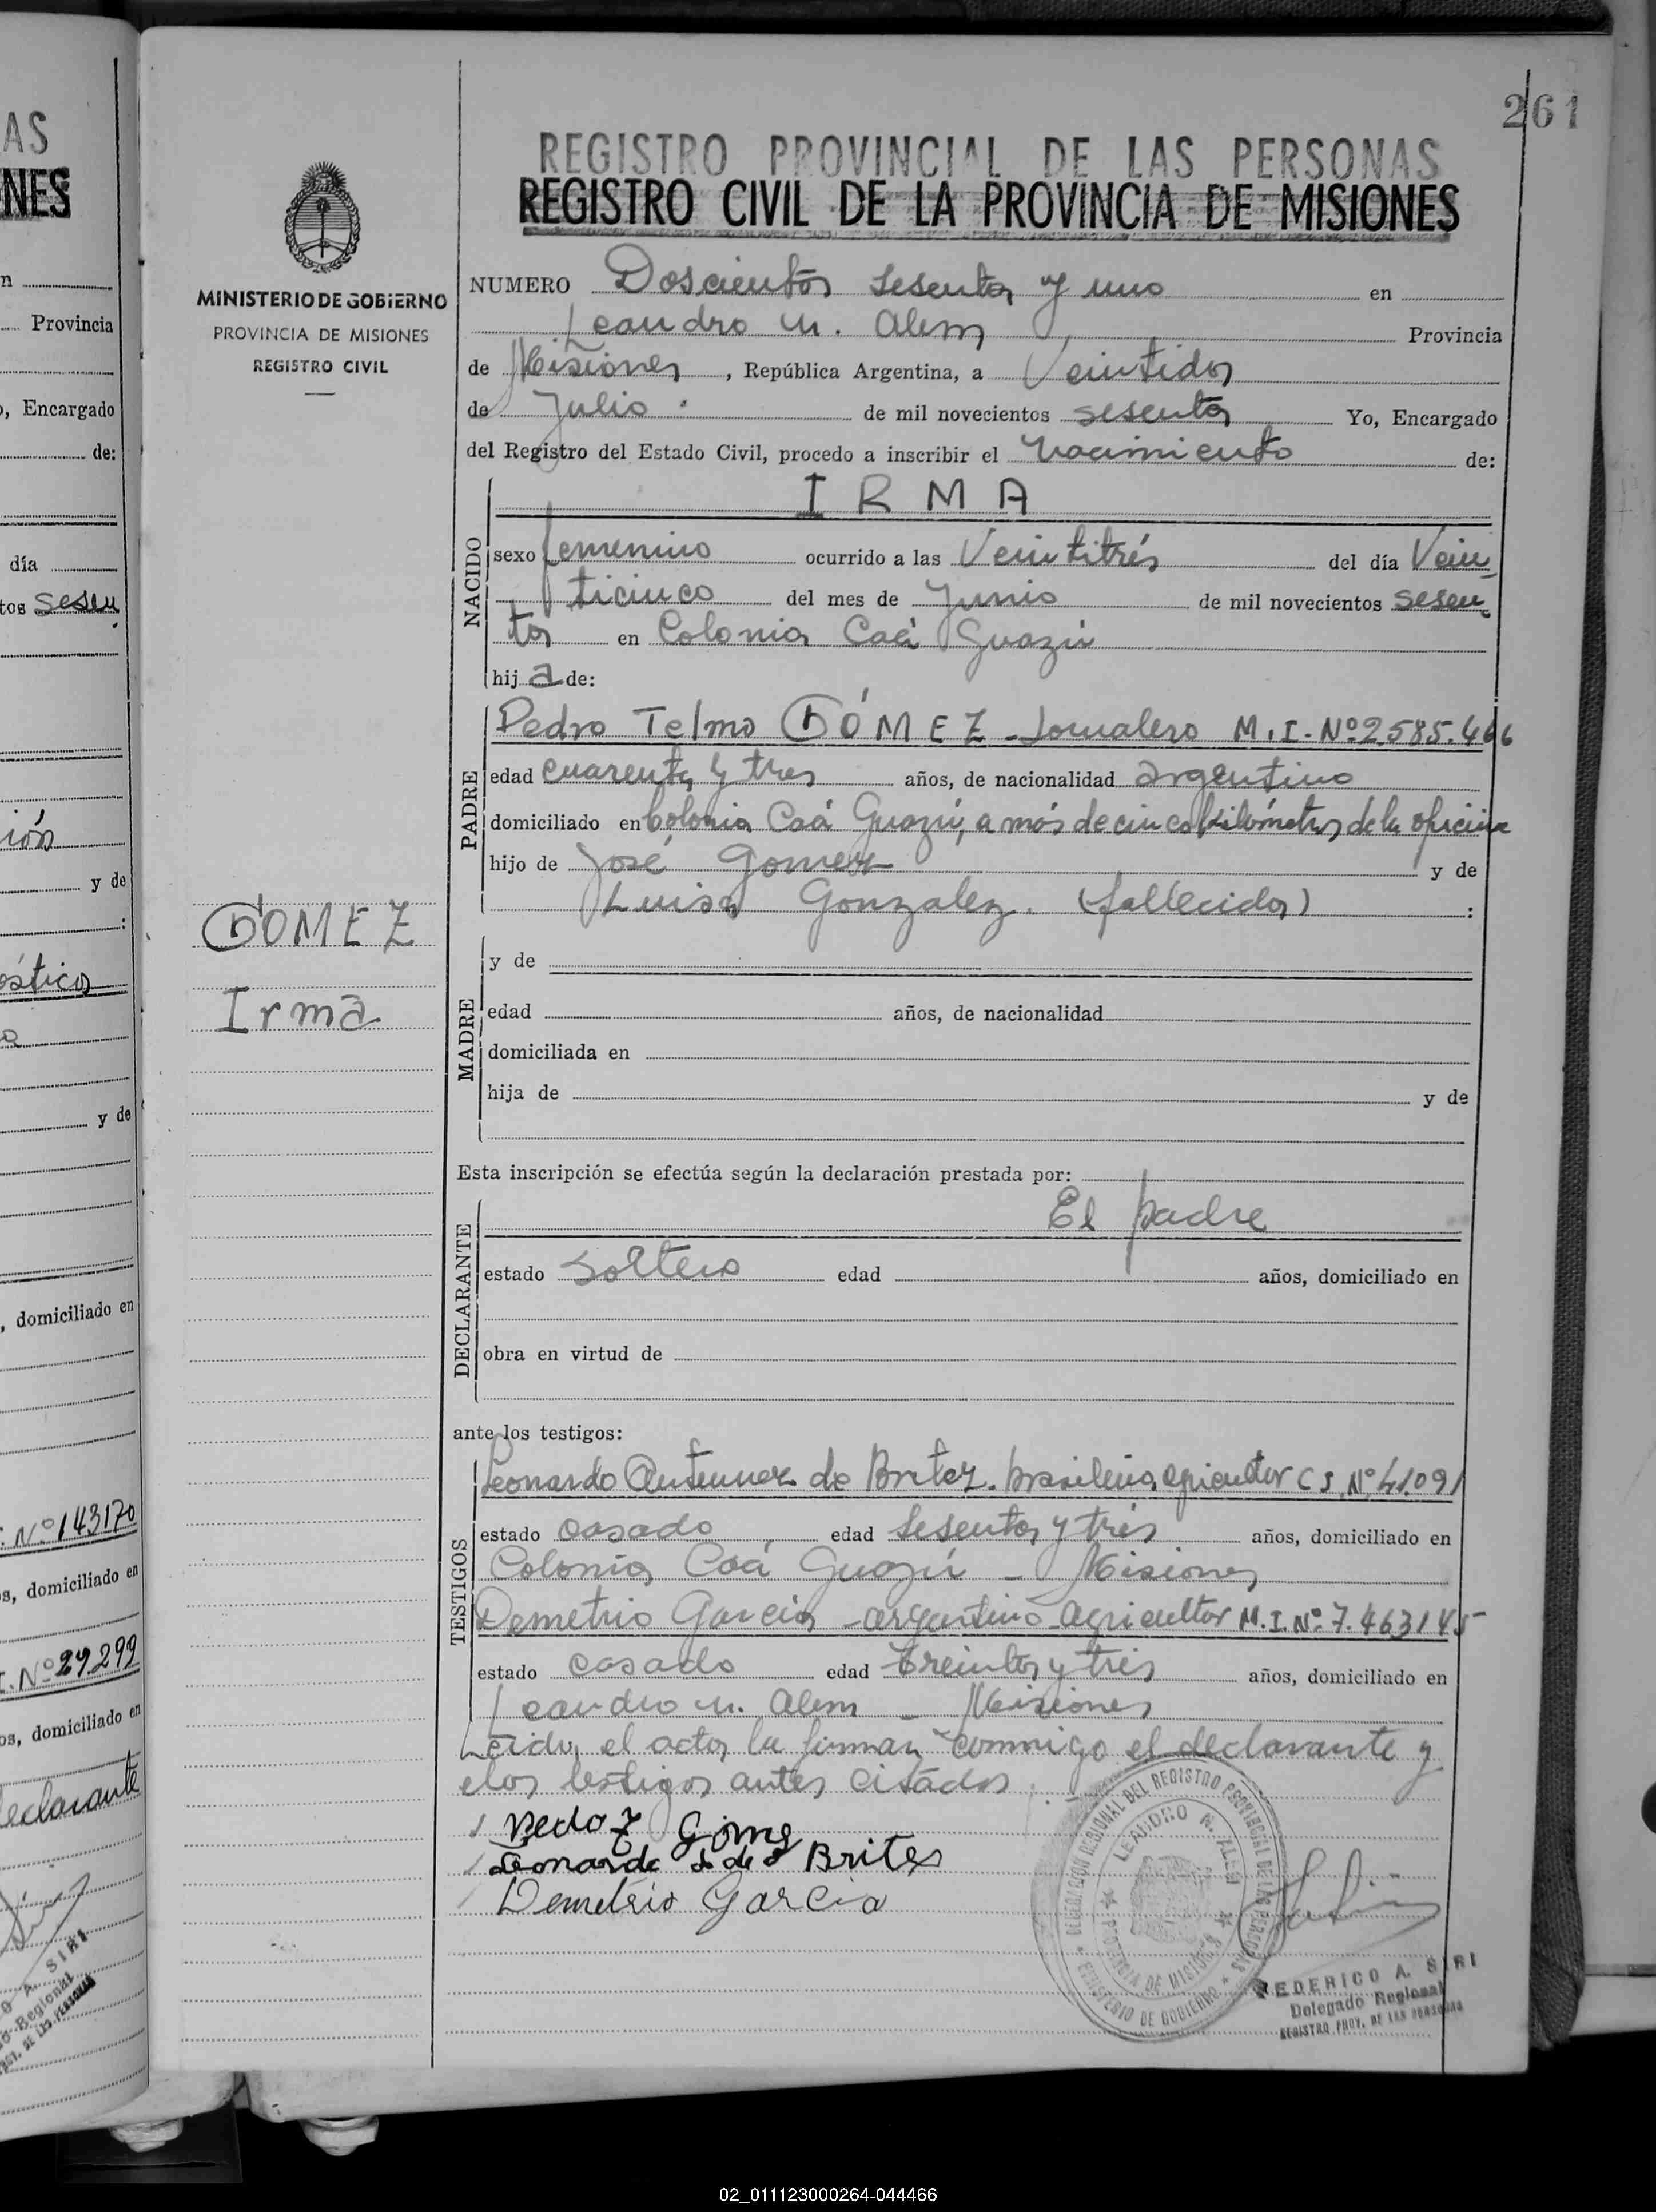 261
AS
NES
REGISTRO PROVINCIAL DE LAS PERSONAS
REGISTRO CIVIL DE LA PROVINCIA DE MISIONES
MINISTERIO DE GOBIERNO
PROVINCIA DE MISIONES
REGISTRO CIVIL
NUMERO Doscientos sesenta y uno en
Leandro N. Alem Provincia
de Misiones, República Argentina, a Veintidos
de Julio de mil novecientos sesenta Yo, Encargado
del Registro del Estado Civil, procedo a inscribir el nacimiento de:
NACIDO
IRMA
sexo femenino ocurrido a las Veintitrés del día Vein
ticinco del mes de Junio de mil novecientos sesen
ta en Colonia Caá Guazú
hija de:
PADRE
Pedro Telmo GÓMEZ - Jornalero M.I. Nº 2.585.466
edad cuarenta y tres años, de nacionalidad argentino
domiciliado en Colonia Caá Guazú, a más de cinco kilómetros de la oficina
hijo de José Gomez y de
Luisa Gonzalez. (fallecida) :
GÓMEZ
Irma
MADRE
y de
edad años, de nacionalidad
domiciliada en
hija de y de
Esta inscripción se efectúa según la declaración prestada por:
DECLARANTE
El padre
estado soltero edad años, domiciliado en
obra en virtud de
ante los testigos:
TESTIGOS
Leonardo de Britez. brasileño, agricultor C.I. Nº 41.091
estado casado edad sesenta y tres años, domiciliado en
Colonia Caá Guazú - Misiones
Demetrio Garcia - argentino - agricultor M.I. Nº 7.463145
estado casado edad treinta y tres años, domiciliado en
Leandro N. Alem - Misiones
Leida, el acta, la firman conmigo el declarante y
los testigos antes citados.
Pedro T Gómez
Leonardo de Brites
Demetrio Garcia
DELEGACION REGIONAL DEL REGISTRO PROVINCIAL DE LAS PERSONAS
LEANDRO N. ALEM
PROVINCIA DE MISIONES
MINISTERIO DE GOBIERNO
FEDERICO A. SIRI
Delegado Regional
REGISTRO PROV. DE LAS PERSONAS
n
Provincia
, Encargado
de:
día
tos sesen
ión
y de
:
y de
, domiciliado en
Nº 143170
s, domiciliado en
I. Nº 29.299
os, domiciliado en
declarante
O A. SIRI
Regional
02_011123000264-044466